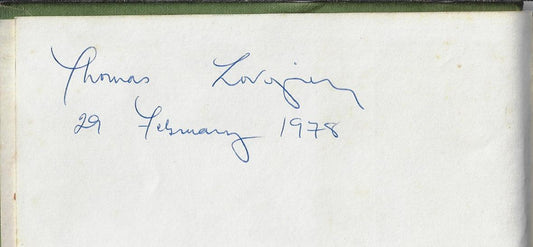 Thomas
29 February 1978